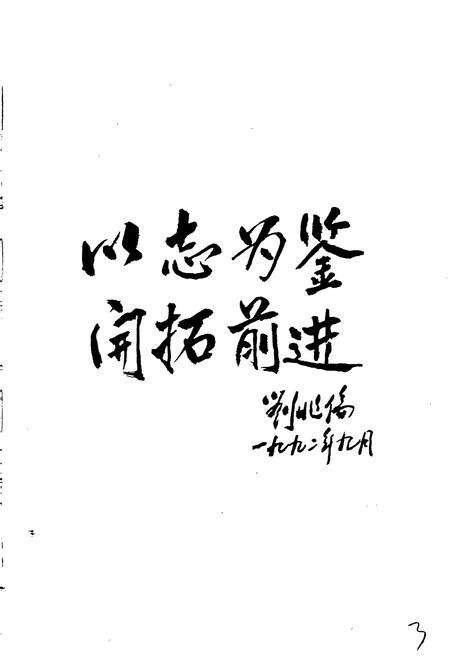 以志为鉴
开拓前进
刘兆伦
一九九二年九月
3